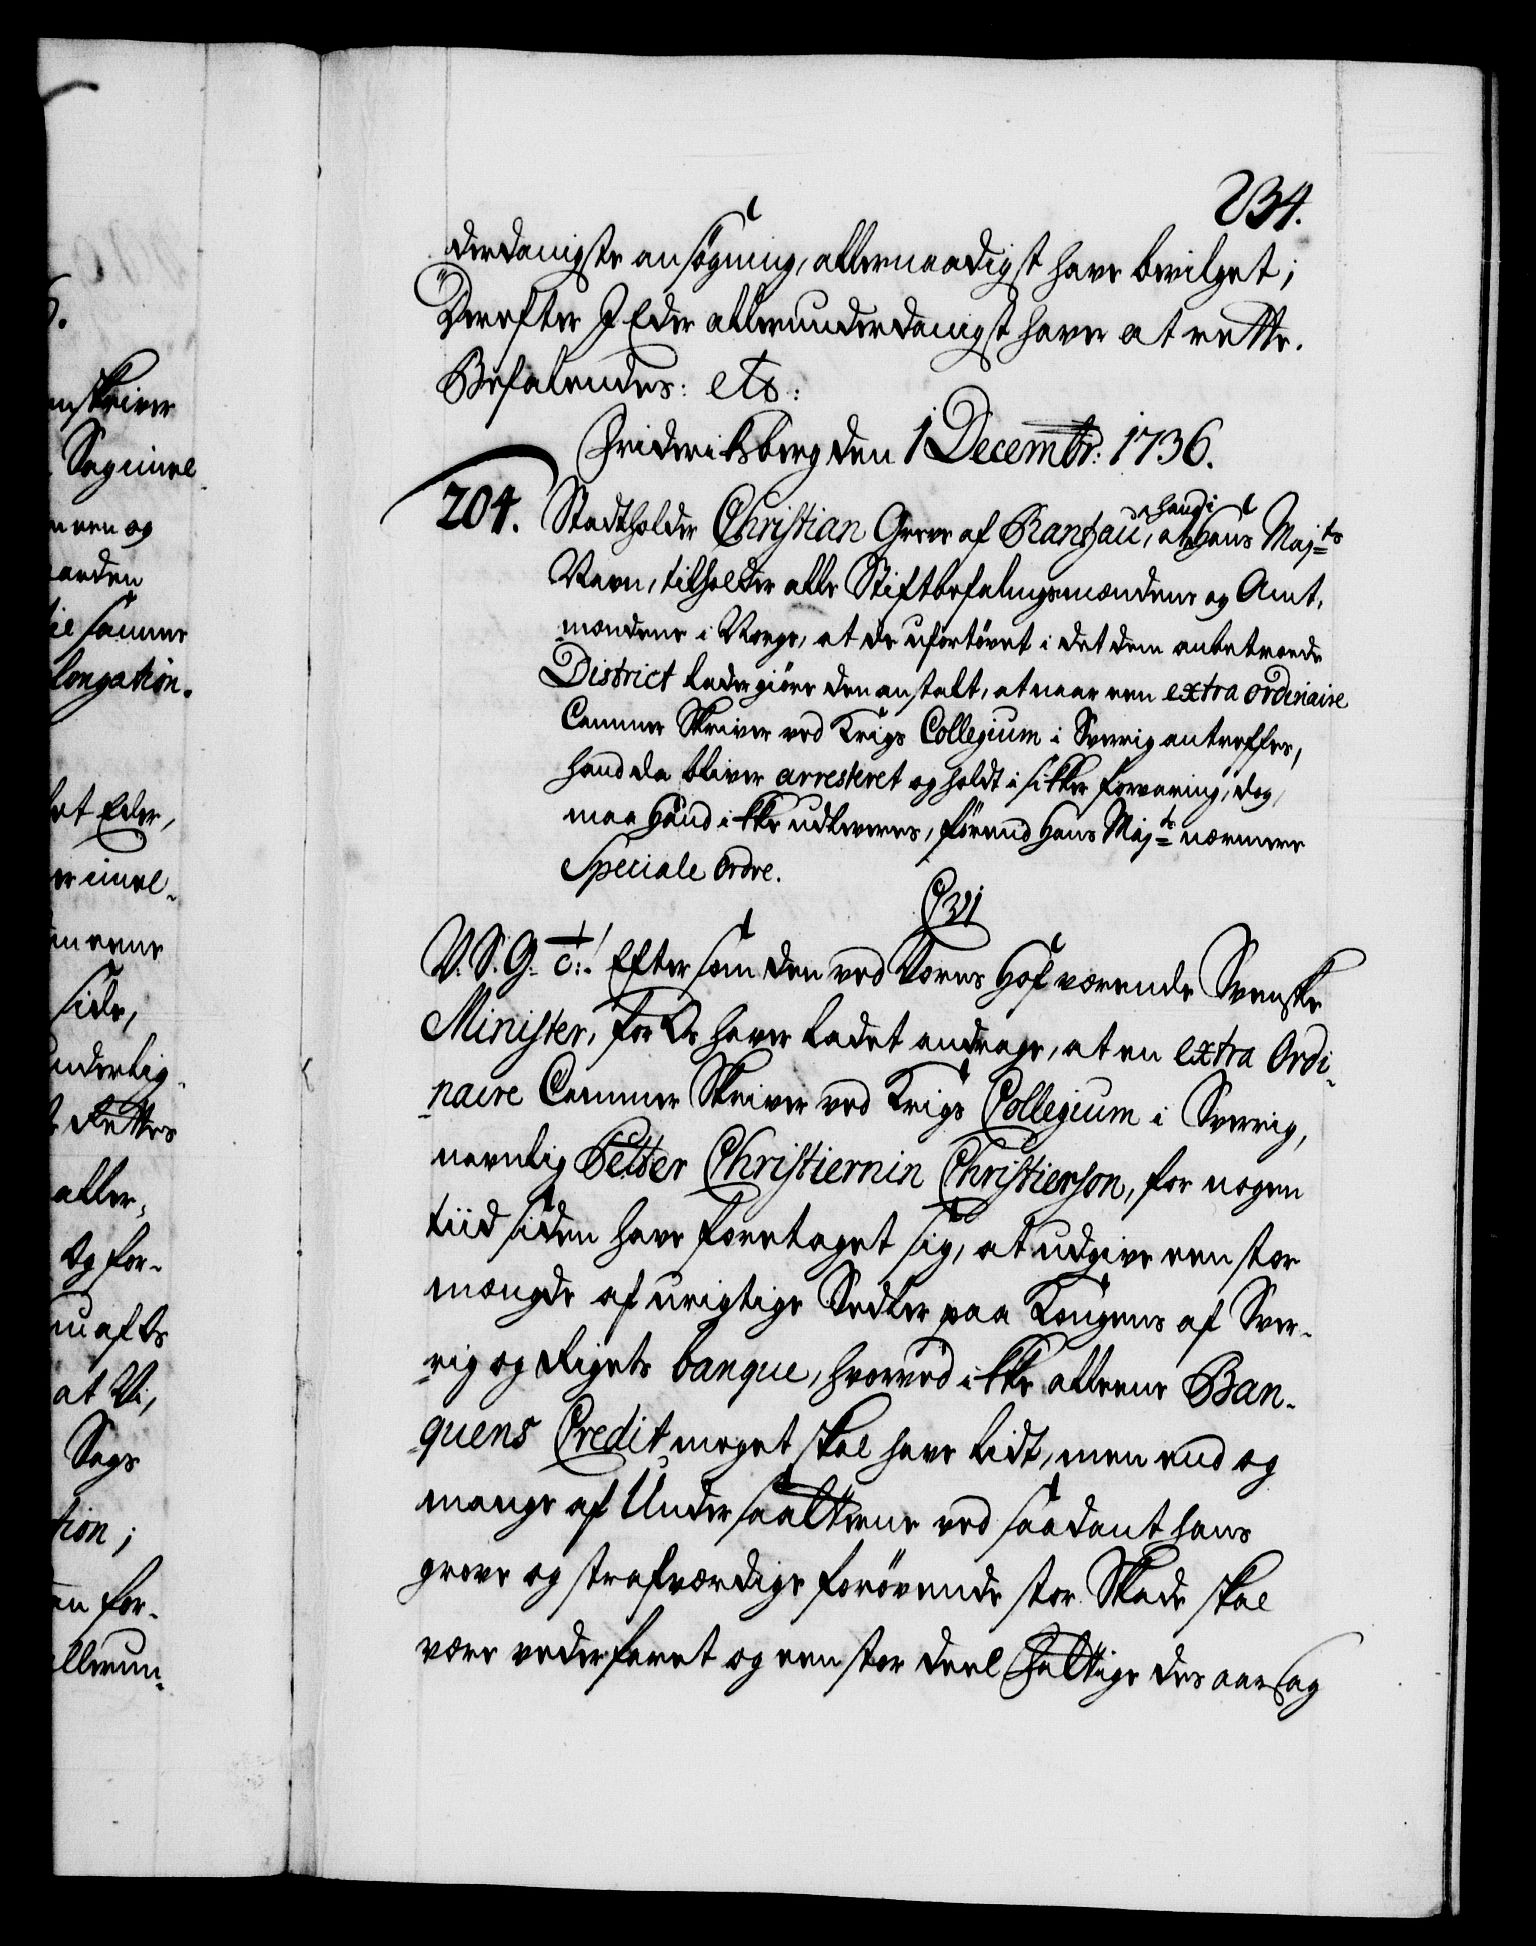 234.
derdanigste ansøgning, allernaadigst have bevilget;
Derefter I Eder allerunderdanigst haver at rette.
Befalendes: etc:
Friderichsberg den 1 Decembr: 1736.
204. Stadtholder Christian Greve af Rantzau, at hand i Hans Maj:ts
Navn, tilholder alle Stiftbefalingsmændene og Amt-
mændene i Norge, at de ufortøvet i det dem anbetroede
District lader giøre den anstalt, at naar een extra ordinaire
Cammer Skriver ved Krigs Collegium i Sverrig antreffes,
hand da bliver arresteret og holdt i sikker forvaring, dog
maa Hand ikke udleveres, førend Hans Maj:ts nærmere
Speciale Ordre.
C VI
V. S. G. t: c:. Eftersom den ved Vores Hof værende Svenske
Minister, for Os haver ladet andrage, at en extra Ordi-
naire Cammer Skriver ved Krigs Collegium i Sverrig,
navnlig Petter Christiernin Christierson, for nogen
tiid siden have foretaget sig, at udgive een stor
mængde af urigtige Sedler paa Kongens af Sver-
rig og Rigets banque, hvorved ikke alleene Ban-
quens Credit meget skal have lidt, men end og
mange af Undersaatterne ved saadant hans
grove og strafværdige forøvende stor Skade skal
være vederfaret og een stor deel fattige des aarsag
nskriver
een og
aarden
samme
longation.
Eder,
side,
underlig-
aller-
Og for-
at Vi,
Sags
tion;
for-
llerun-